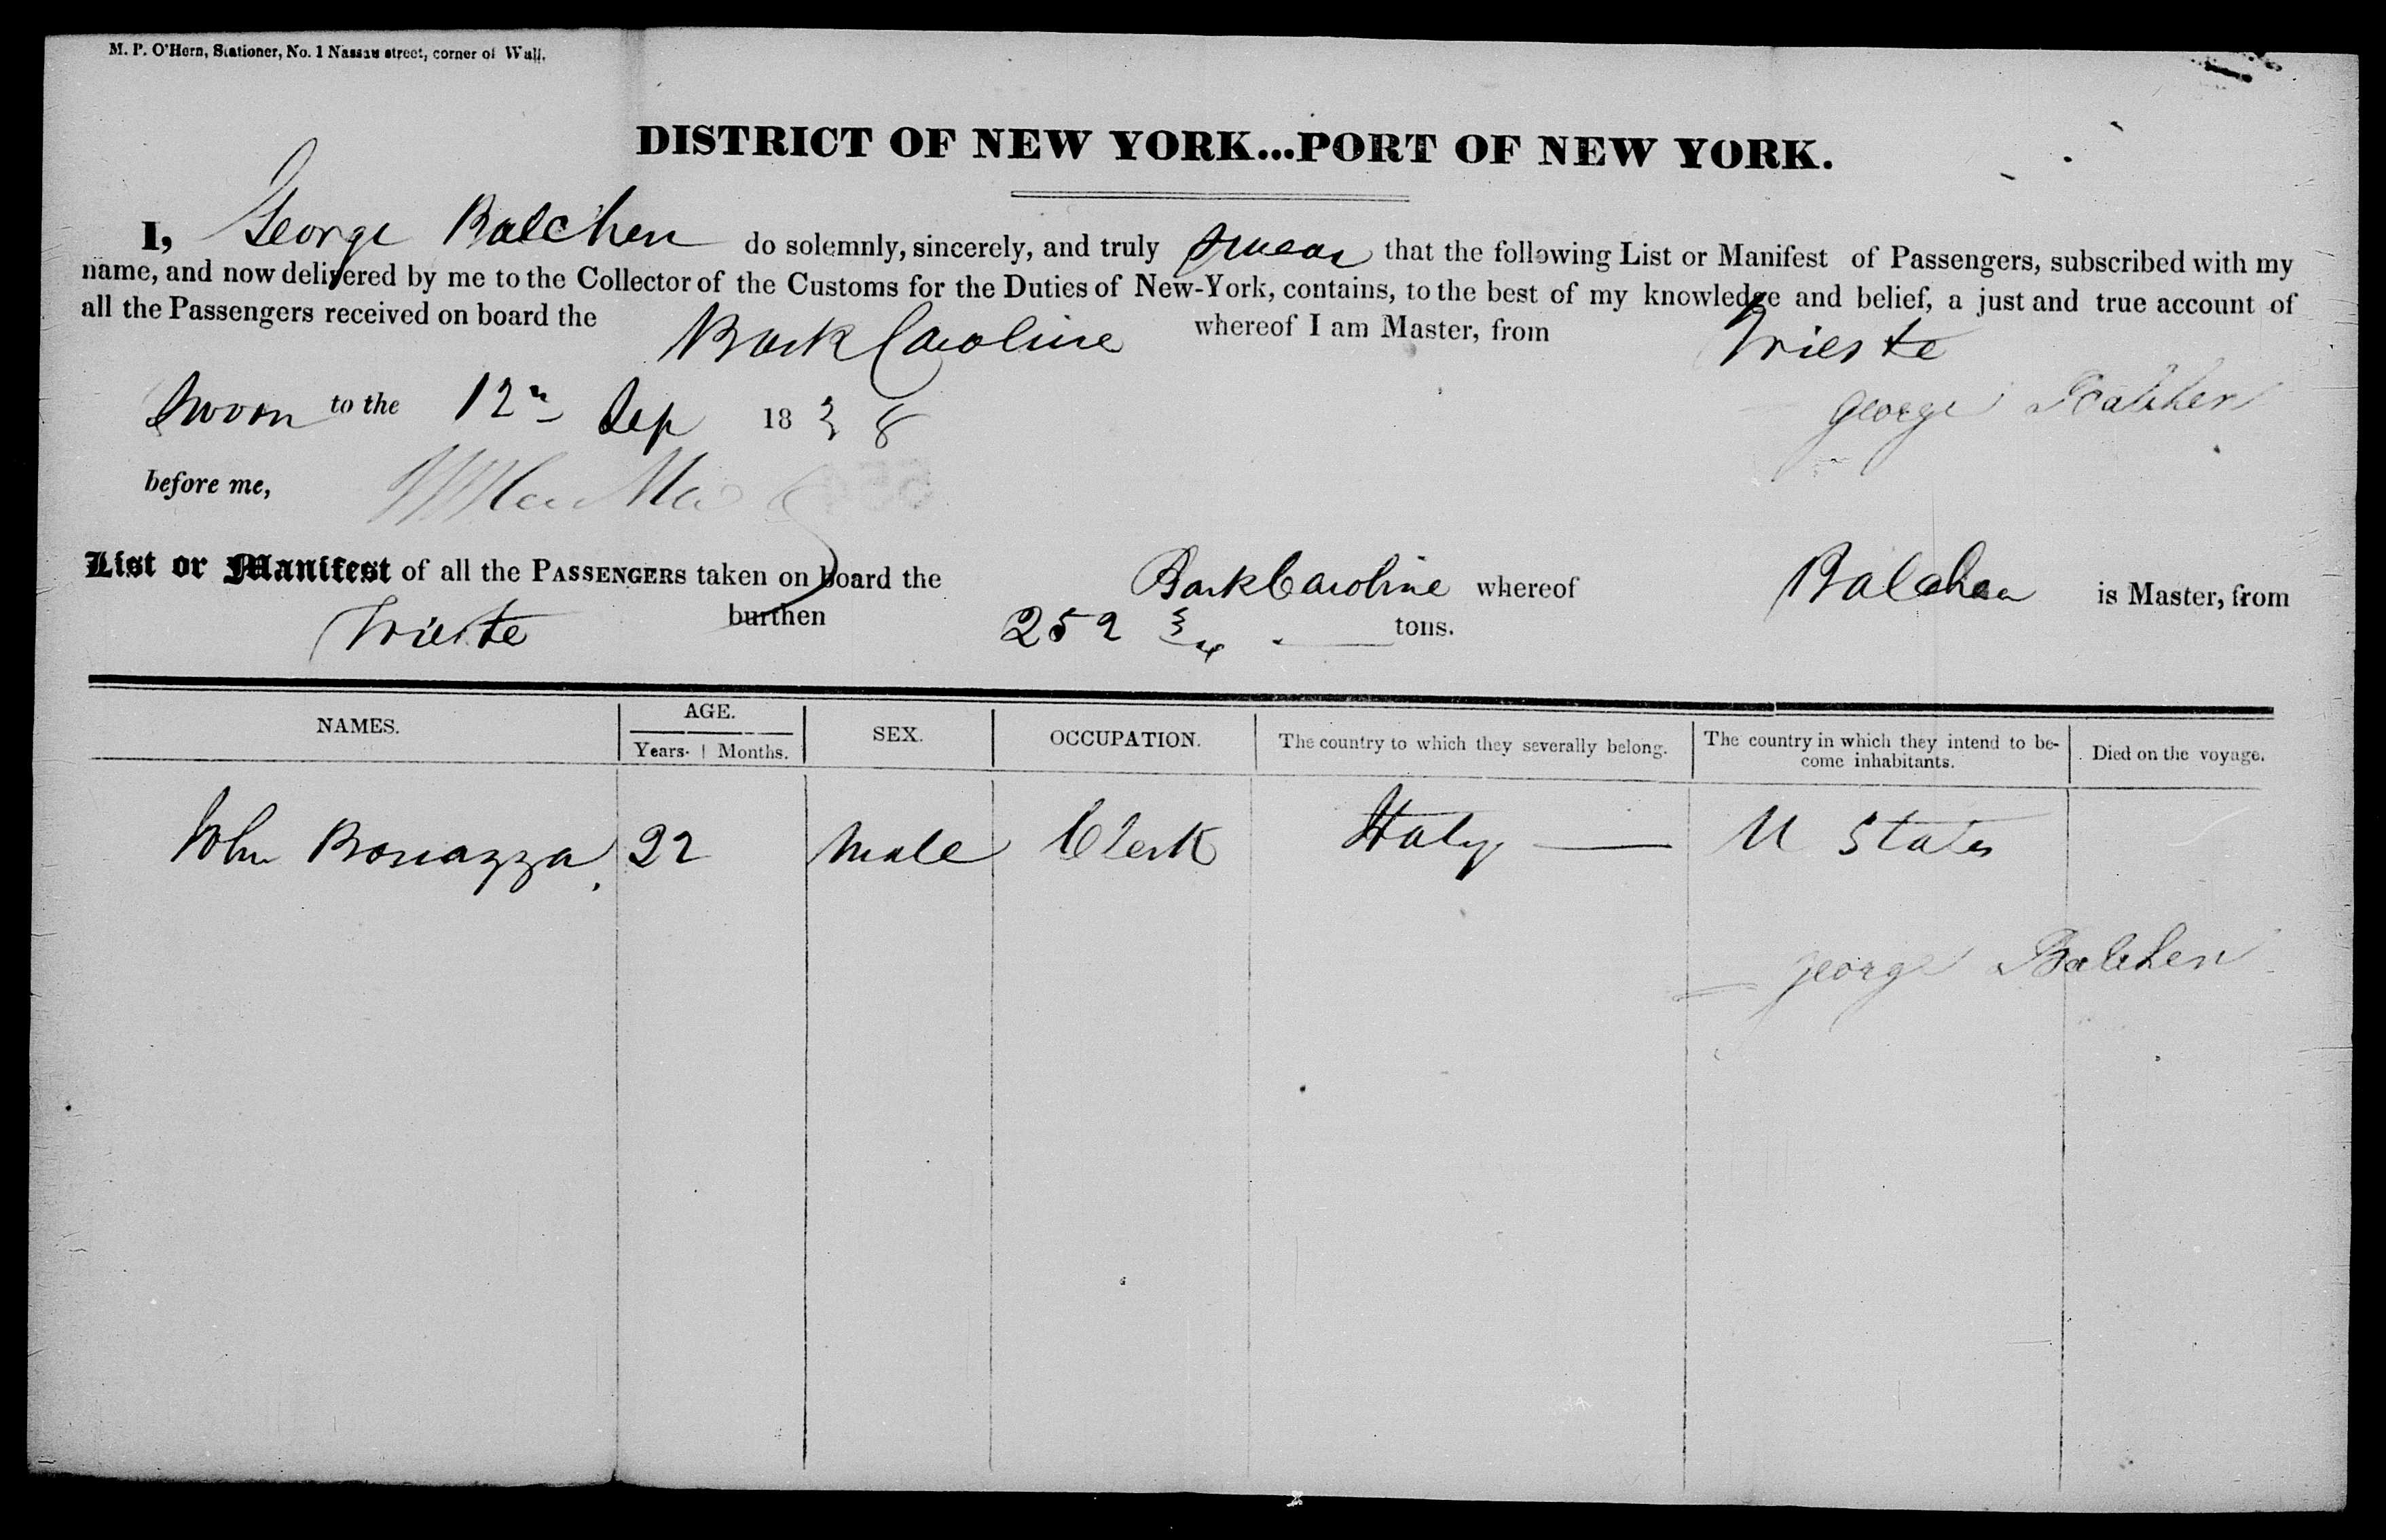 M. P. O'Hern, Stationer, No. 1 Nassau street, corner of Wall.
DISTRICT OF NEW YORK...PORT OF NEW YORK.
I, George Balchen do solemnly, sincerely, and truly swear that the following List or Manifest of Passengers, subscribed with my
name, and now delivered by me to the Collector of the Customs for the Duties of New-York, contains, to the best of my knowledge and belief, a just and true account of
all the Passengers received on board the Bark Caroline whereof I am Master, from Trieste
Sworn to the 12 Sep 1838 George Balchen
before me,
List or Manifest of all the PASSENGERS taken on board the Bark Caroline whereof Balchen is Master, from
Trieste burthen 252 tons.
NAMES. AGE. SEX. OCCUPATION. The country to which they severally belong. The country in which they intend to be-come inhabitants. Died on the voyage.
Years. Months.
John Bonazza, 22 Male Clerk Italy — U States
George Balchen